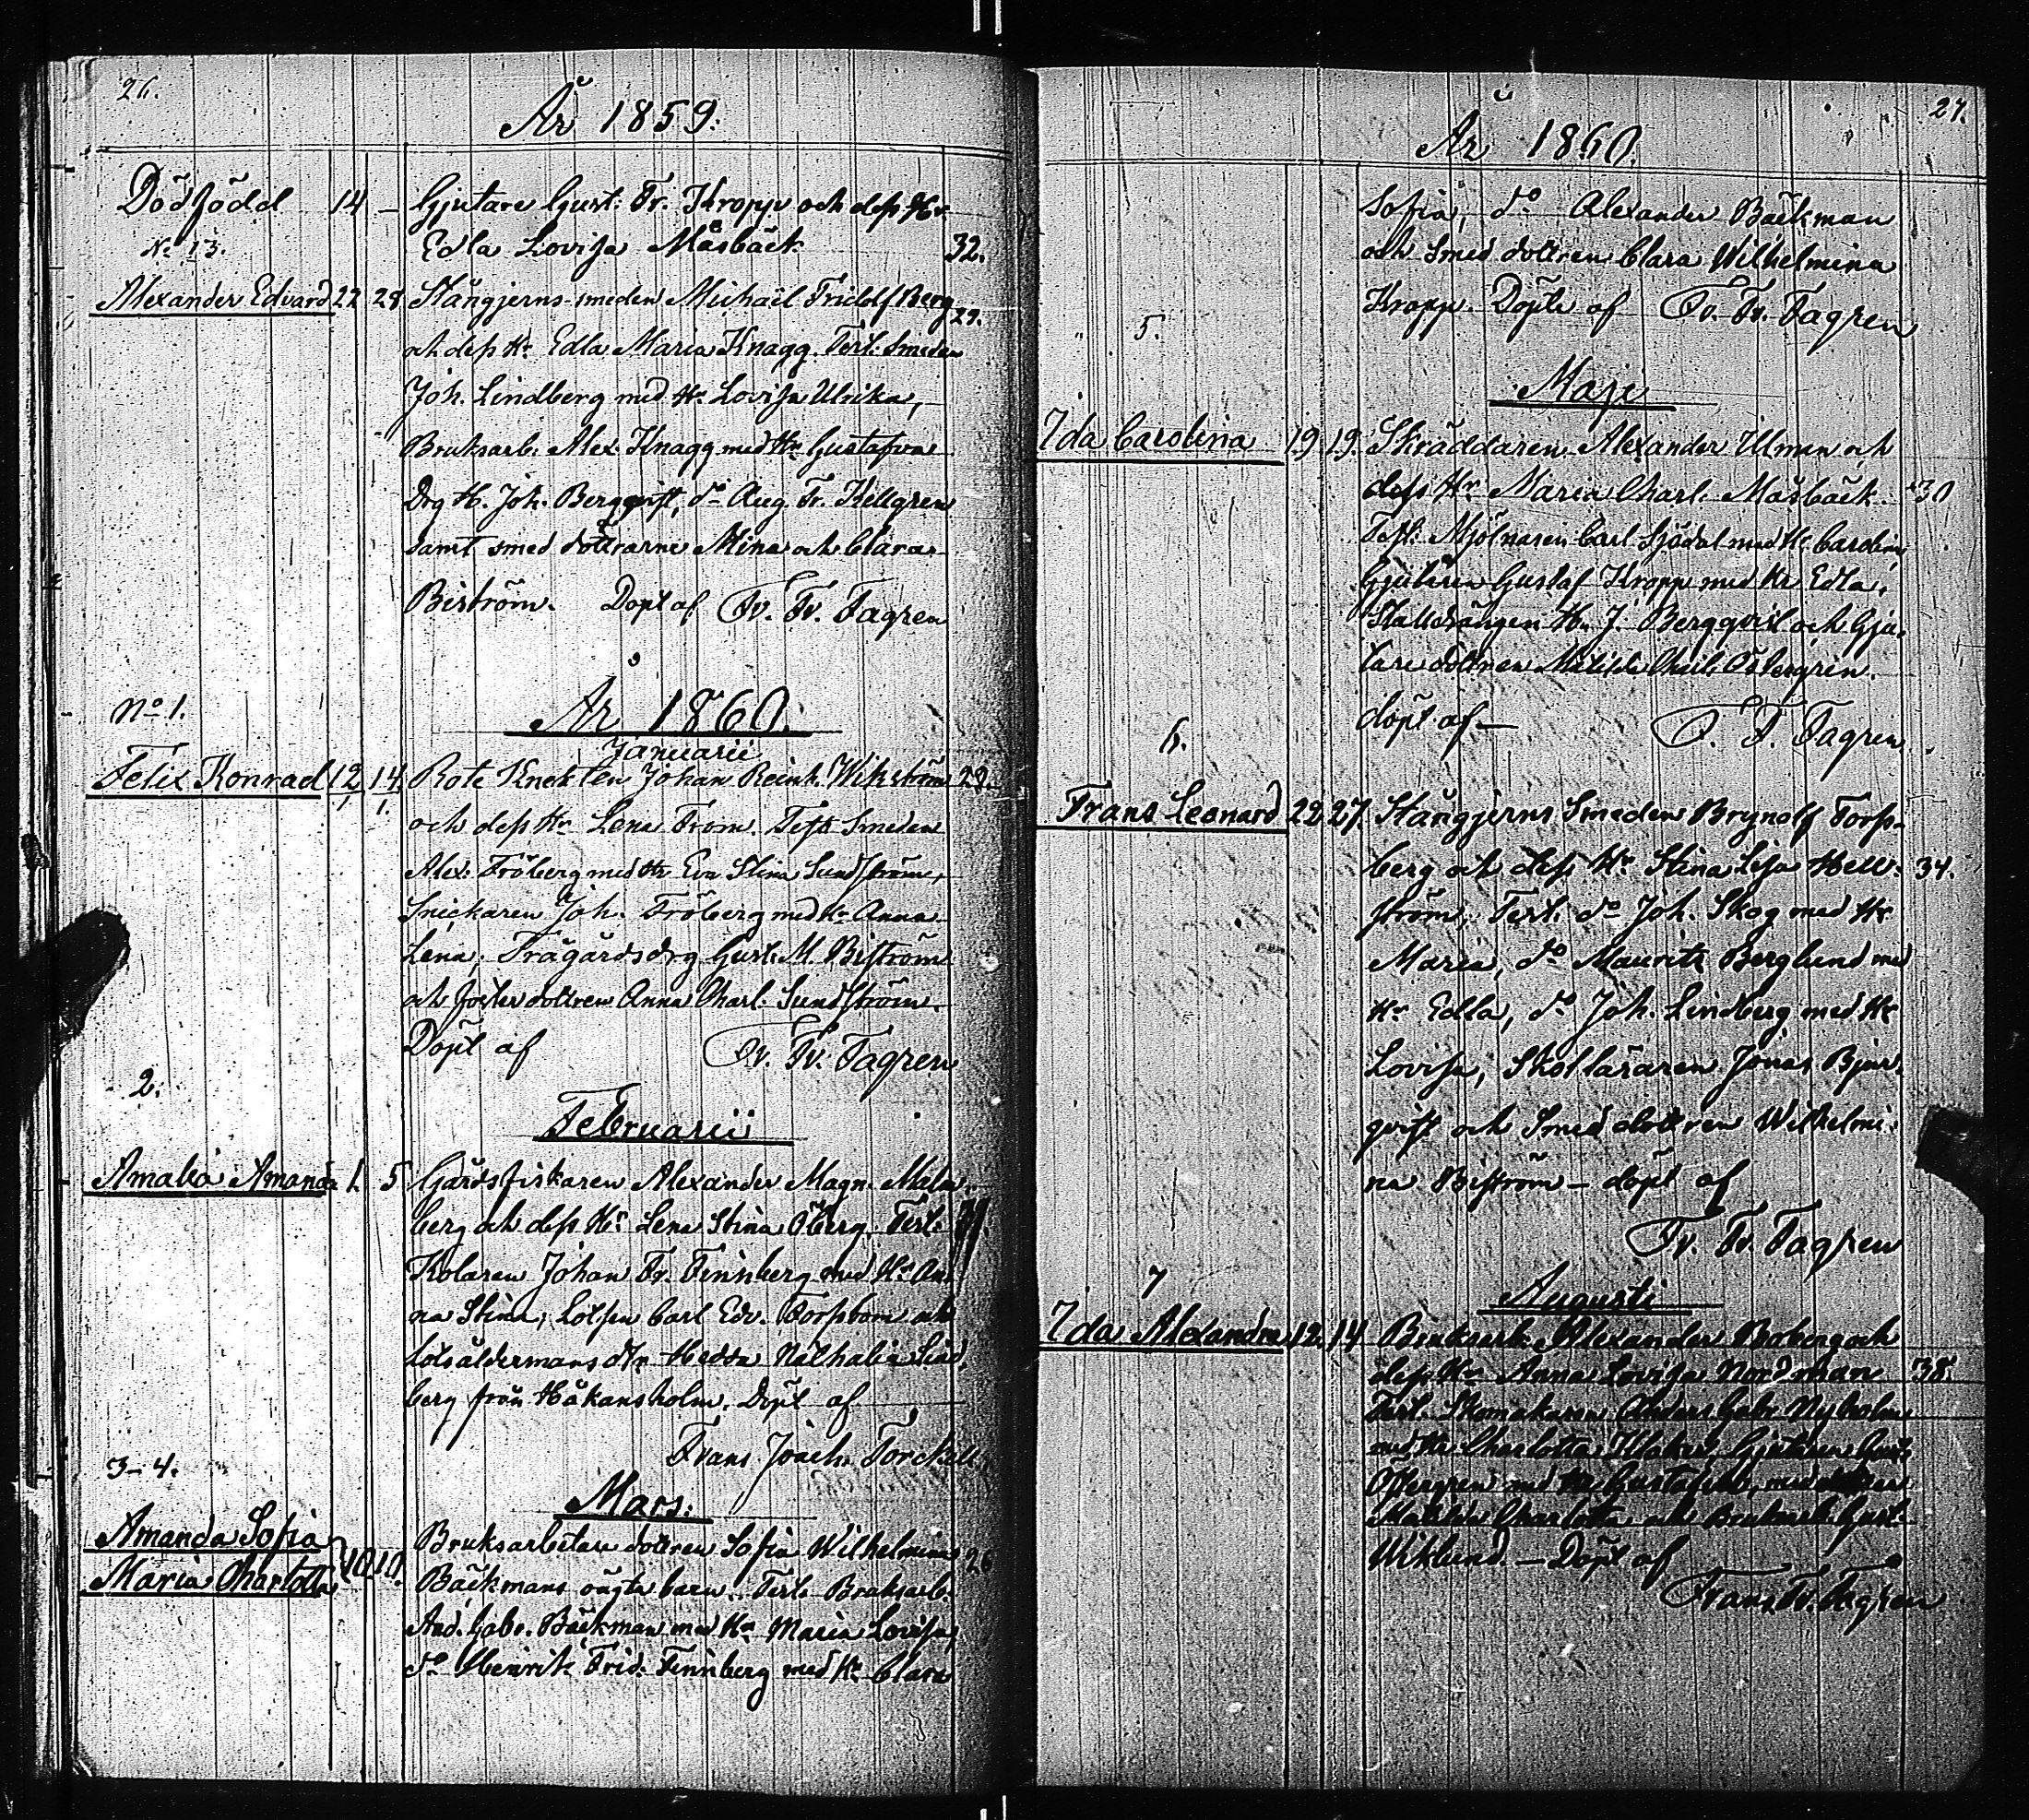 26.
År 1859.
Dödfödd 14 — Gjutare Gust: Fr. Kropp och dess Hr
No 13. Edla Lovisa Måsbäck 32.
Alexander Edvard 22 28 Stångjerns-smeden Michaël Fridolf Berg 29.
och dess Hr Edla Maria Knagg. Test: Smeden
Joh. Lindberg med Hr Lovisa Ulrika,
Bruksarb. Alex. Knagg med Hr Gustafva
Drg H. Joh. Bergqvist, do Aug. Fr. Kellgren
samt smed döttrarne Mina och Clara
Biström. Döpt af Fr. Fr. Fagren
No 1.
År 1860.
Januarii
Felix Konrad 12/1 14/1 Rote Knekten Johan Reinh. Wikström 29.
och dess Hr Lena From. Test Smeden
Alex: Fröberg med Hr Eva Stina Sundström,
Snickaren Joh. Fröberg med Hr Anna
Lena, Trägårdsdrg Gust. M. Biström
och fosterdottren Anna Charl. Sundström.
Döpt af Fr. Fr. Fagren
2.
Februarii
Amalia Amanda 1. 5 Gårdsfiskaren Alexander Magn. Malm-
berg och dess Hr Lena Stina Öberg. Test:
Kolaren Johan Fr. Finnberg med Hr An-
na Stina, Lotsen Carl Edv. Forsbom och
lotsåldermans dtr Hedda Nathalia Lind-
berg från Håkansholm. Döpt af
Frans Joach. Torckell
3-4.
Mars.
Amanda Sofia
Maria Charlotta 10 10. Bruksarbetare dottren Sofia Wilhelmina 26
Bäckmans oägta barn. Test. Bruksarb.
And. Gabr. Bäckman med Hr Maria Lovisa,
do Henrik Frid. Finnberg med Hr Clara
27.
År 1860.
Sofia, do Alexander Bäckman
och Smed dottren Clara Wilhelmina
Kropp. Döpte af Fr. Fr. Fagren
5.
Maji
Ida Carolina 19 19. Skräddaren Alexander Ulman och
dess Hr Maria Charl. Måsbäck 30
Test: Mjölnaren Carl Sjödal med Hr Carolina,
Gjutaren Gustaf Kropp med Hr Edla,
Stalldrängen H. J. Bergqvist och Gju-
tare dottren Matilda Charl. Östergren.
döpt af — F. F. Fagren
6.
Frans Leonard 22 27. Stångjerns Smeden Brynolf Forss-
berg och dess Hr Stina Lisa Hell- 34.
ström, Test. do Joh. Skog med Hr
Maria, do Mauritz Berglund med
Hr Edla, do Joh. Lindberg med Hr
Lovisa, Skolläraren Jonas Bjur-
qvist och Smed dottren Wilhelmi-
na Biström — döpt af
Fr. Fr. Fagren
7
Augusti
Ida Alexandra 12. 14 Bruksarb. Alexander Boberg och
dess Hr Anna Lovisa Nordman 38.
Test. Skomakaren Anders Gabr. Nyholm
med Hr Charlotta, Gjutaren
Östergren med Hr Gustafva,
Matilda Charlotta och Bruksarb. Gust.
Wiklund. — Döpt af
Frans Fr. Fagren